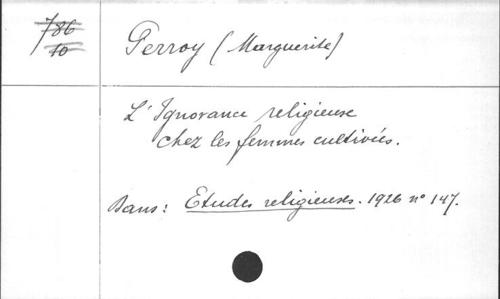 786
10
Perroy (Marguerite)
L'Ignorance religieuse
chez les femmes cultivées.
Dans: Etudes religieuses. 1926 n° 147.